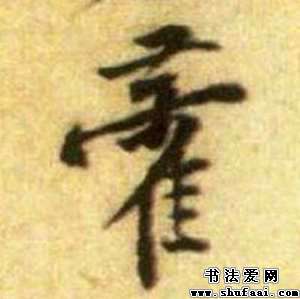 霍
书法爱网
www.shufaai.com